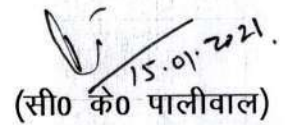 15.01.2021.
(सी0 के0 पालीवाल)